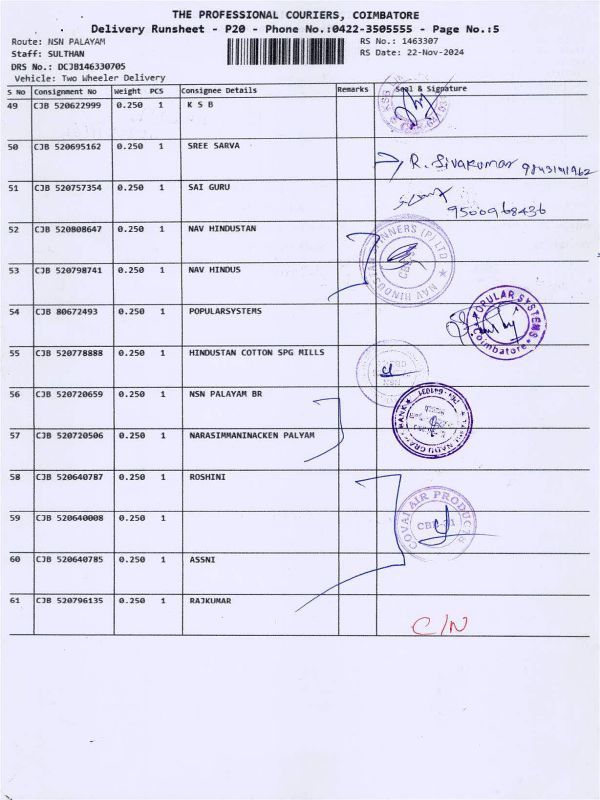 THE PROFESSIONAL COURIERS, COIMBATORE
Delivery Runsheet - P20 - Phone No.:0422-3505555 - Page No.:5
Route: NSN PALAYAM
RS No.: 1463307
Staff: SULTHAN
RS Date: 22-Nov-2024
DRS No.: DCJB146330705
Vehicle: Two Wheeler Delivery
S No Consignment No Weight PCS Consignee Details Remarks Seal & Signature
49 CJB 520622999 0.250 1 K S B
50 CJB 520695162 0.250 1 SREE SARVA R. Sivakumar
51 CJB 520757354 0.250 1 SAI GURU 9500968436
52 CJB 520808647 0.250 1 NAV HINDUSTAN
53 CJB 520798741 0.250 1 NAV HINDUS
54 CJB 80672493 0.250 1 POPULARSYSTEMS
POPULAR SYSTEMS
Coimbatore
55 CJB 520778888 0.250 1 HINDUSTAN COTTON SPG MILLS
56 CJB 520720659 0.250 1 NSN PALAYAM BR
57 CJB 520720506 0.250 1 NARASIMMANINACKEN PALYAM
58 CJB 520640787 0.250 1 ROSHINI
COVAI AIR PRODUCTS
59 CJB 520640008 0.250 1
60 CJB 520640785 0.250 1 ASSNI
61 CJB 520796135 0.250 1 RAJKUMAR
C/N